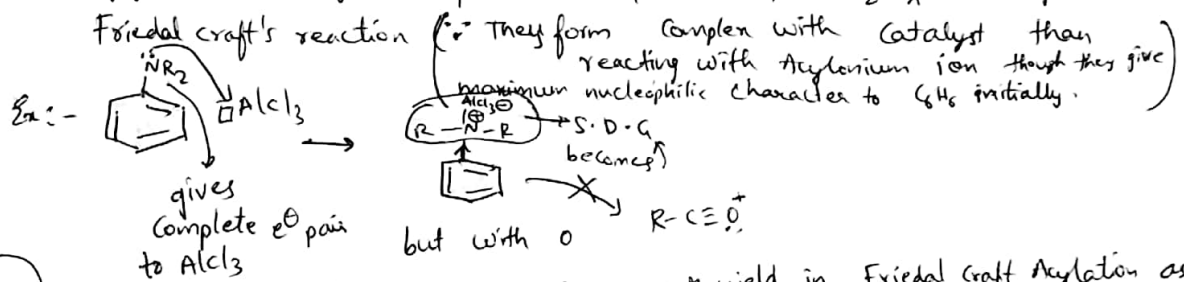 Friedal craft's reaction (∵ They form Complex with Catalyst than
reacting with Acylonium ion though they give
maximum nucleophilic character to C6H6 initially.)
Ex:-
N̈R2
□AlCl3
AlCl3⊖
R-N⊕-R
→S.D.G
becomes
gives
Complete e⊖ pair
to AlCl3
but with o
R-C≡O+
yield in Friedal Craft Acylation as